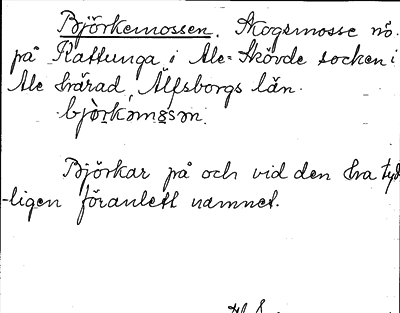 Björkemossen. Skogsmosse nö.
på Rattunga i Ale-Skövde socken i
Ale härad, Älfsborgs län.
bjòrkǝmåsǝn.
Björkar på och vid den ha tyd
-ligen föranlett namnet.